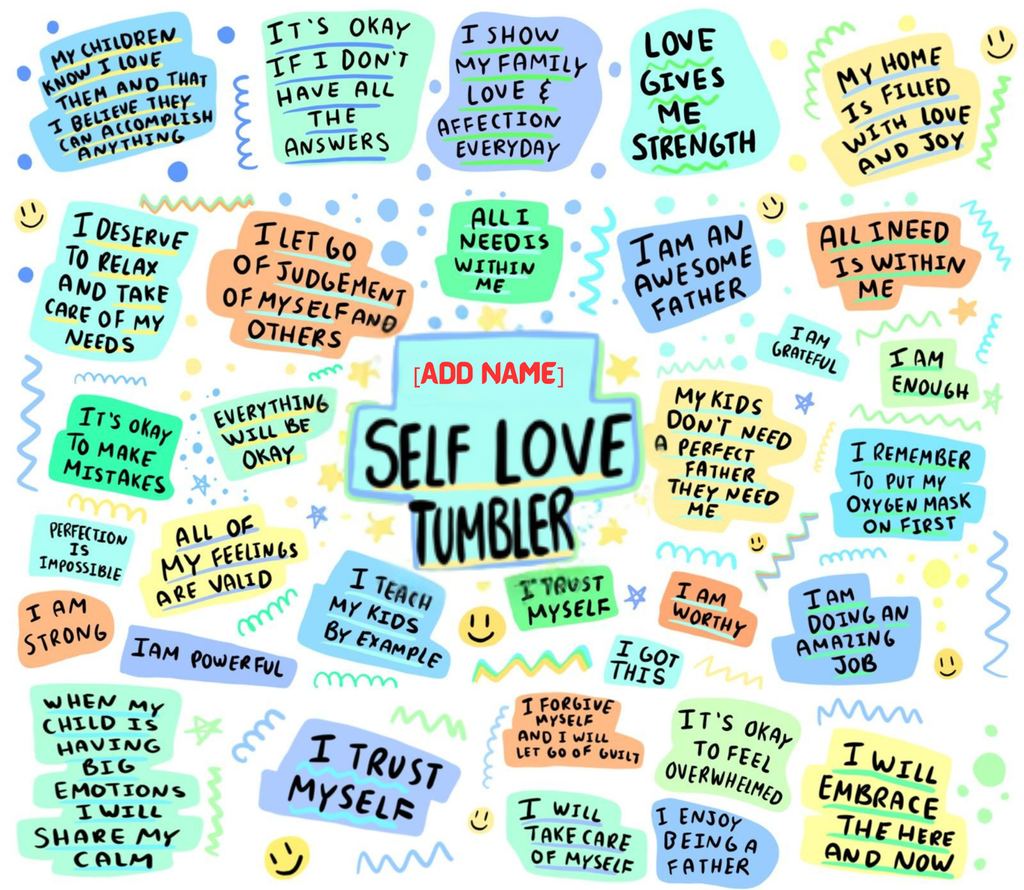 MY CHILDREN
KNOW I LOVE
THEM AND THAT
I BELIEVE THEY
CAN ACCOMPLISH
ANYTHING
IT'S OKAY
IF I DON'T
HAVE ALL
THE
ANSWERS
I SHOW
MY FAMILY
LOVE &
AFFECTION
EVERYDAY
LOVE
GIVES
ME
STRENGTH
MY HOME
IS FILLED
WITH LOVE
AND JOY
I DESERVE
TO RELAX
AND TAKE
CARE OF MY
NEEDS
I LET GO
OF JUDGEMENT
OF MYSELF AND
OTHERS
ALL I
NEED IS
WITHIN
ME
I AM AN
AWESOME
FATHER
ALL I NEED
IS WITHIN
ME
I AM
GRATEFUL
I AM
ENOUGH
[ADD NAME]
SELF LOVE
TUMBLER
IT'S OKAY
TO MAKE
MISTAKES
EVERYTHING
WILL BE
OKAY
MY KIDS
DON'T NEED
A PERFECT
FATHER
THEY NEED
ME
I REMEMBER
TO PUT MY
OXYGEN MASK
ON FIRST
PERFECTION
IS
IMPOSSIBLE
ALL OF
MY FEELINGS
ARE VALID
I AM
STRONG
I AM POWERFUL
I TEACH
MY KIDS
BY EXAMPLE
I TRUST
MYSELF
I AM
WORTHY
I GOT
THIS
I AM
DOING AN
AMAZING
JOB
WHEN MY
CHILD IS
HAVING
BIG
EMOTIONS
I WILL
SHARE MY
CALM
I TRUST
MYSELF
I FORGIVE
MYSELF
AND I WILL
LET GO OF GUILT
IT'S OKAY
TO FEEL
OVERWHELMED
I WILL
TAKE CARE
OF MYSELF
I ENJOY
BEING A
FATHER
I WILL
EMBRACE
THE HERE
AND NOW